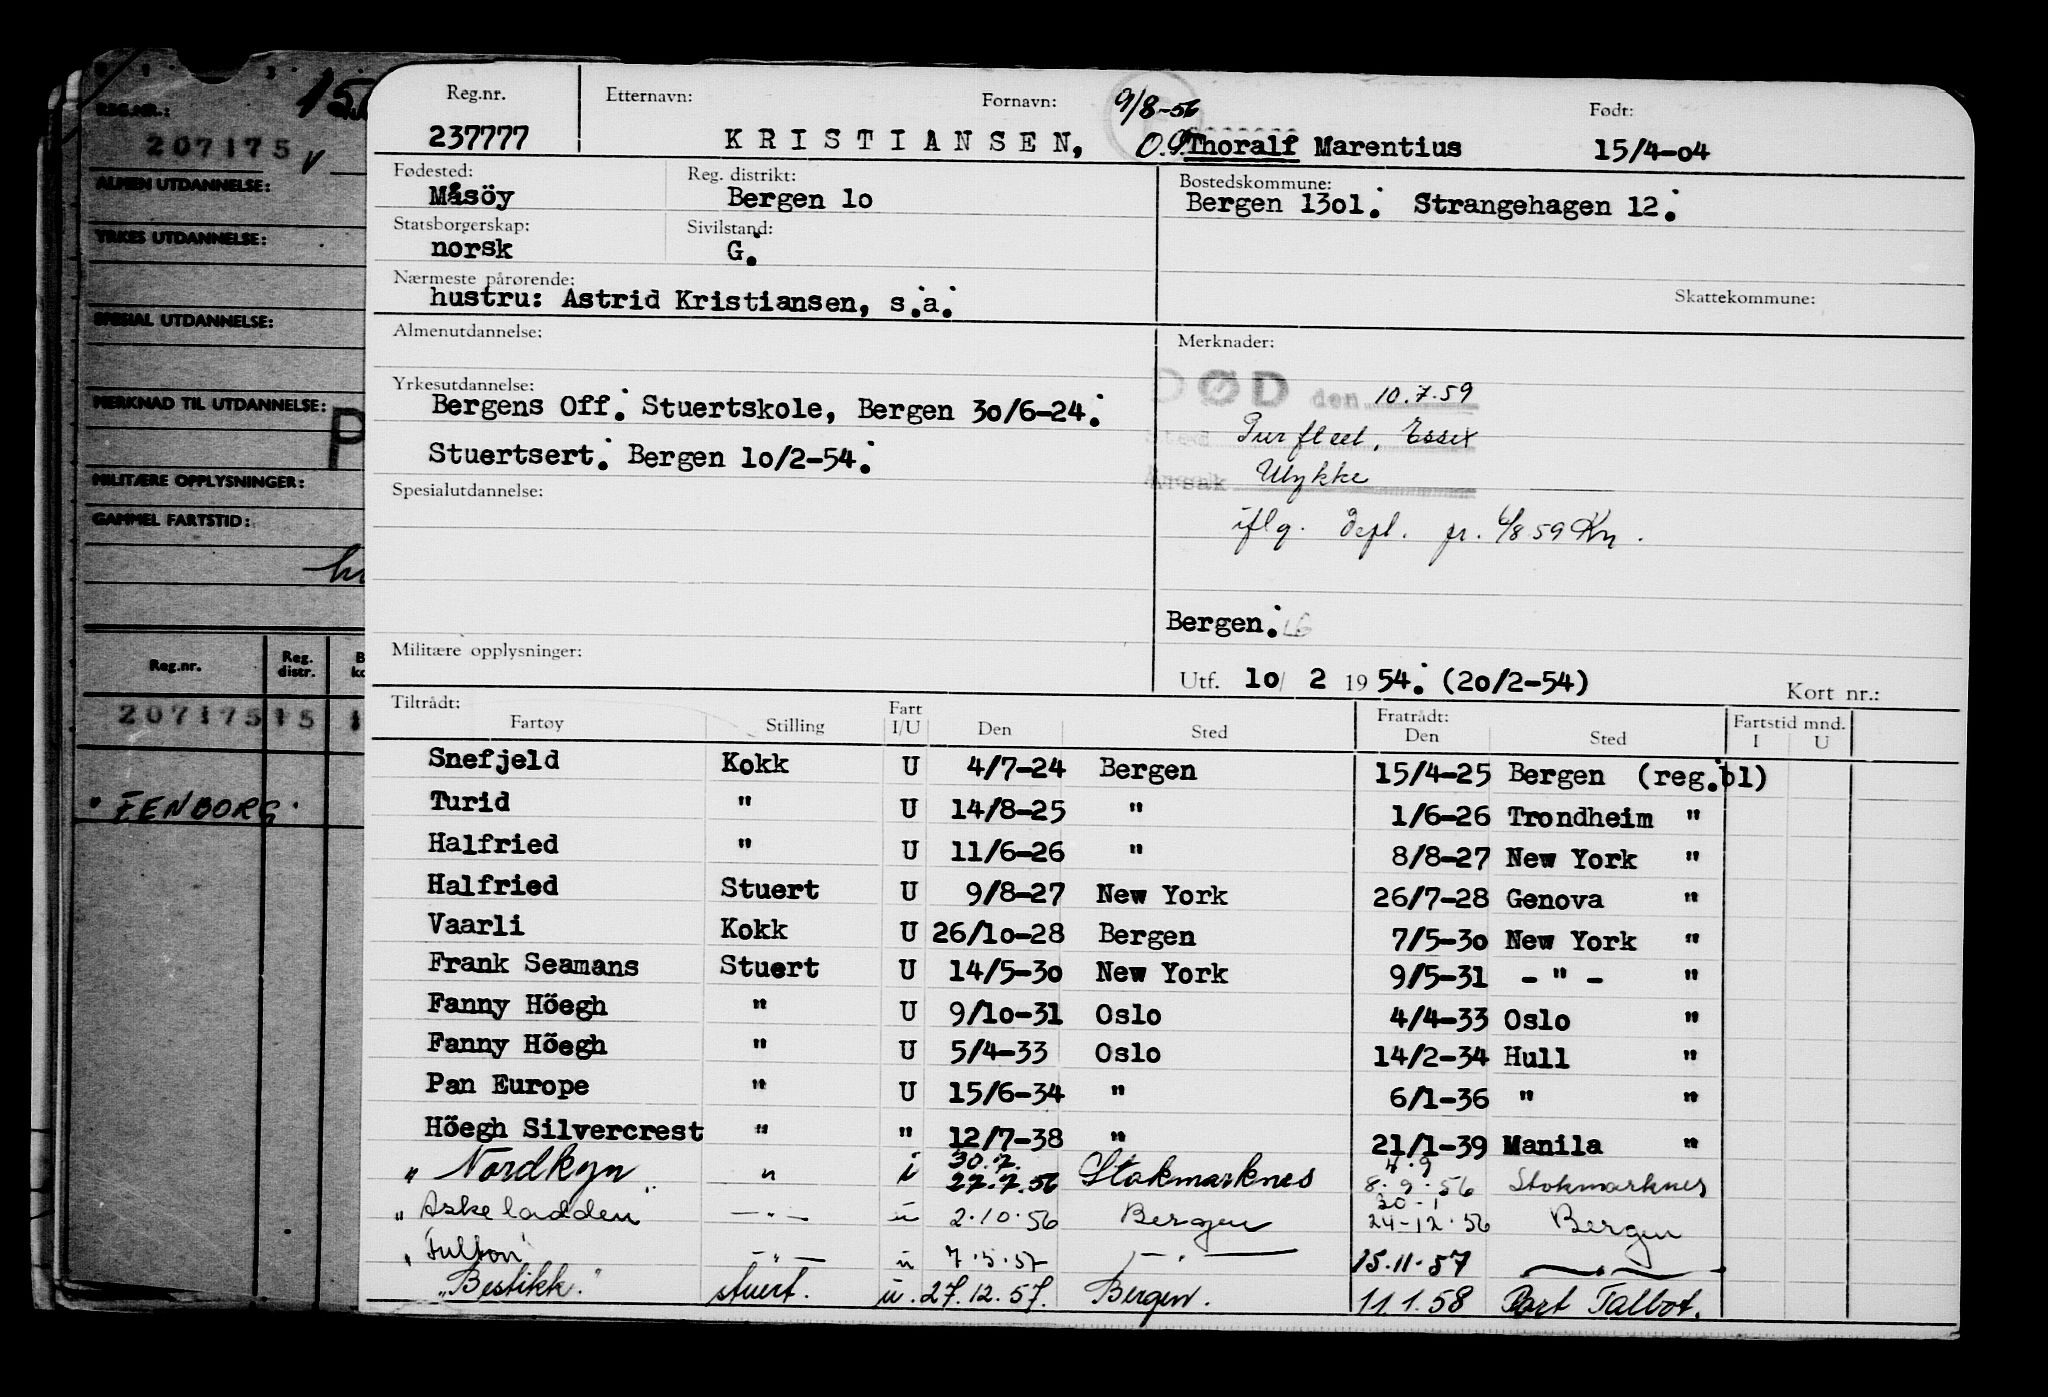 REG.NR.:
207175 V
ALMEN UTDANNELSE:
YRKES UTDANNELSE:
SPESIAL UTDANNELSE:
MERKNAD TIL UTDANNELSE:
P
MILITÆRE OPPLYSNINGER:
GAMMEL FARTSTID:
Reg.nr. Reg. distr.
207175 15 1
"FENBORG"
Reg.nr. Etternavn: Fornavn: 9/8-56 Født:
237777 KRISTIANSEN, Thoralf Marentius 15/4-o4
Fødested: Reg. distrikt: Bostedskommune:
Måsöy Bergen lo Bergen 13ol. Strangehagen 12.
Statsborgerskap: Sivilstand:
norsk G.
Nærmeste pårørende: Skattekommune:
hustru: Astrid Kristiansen, s.a.
Almenutdannelse: Merknader:
DØD den 10.7.59
Yrkesutdannelse:
Bergens Off. Stuertskole, Bergen 30/6-24.
Sted Purfleet, Essex
Stuertsert. Bergen lo/2-54.
Årsak Ulykke
Spesialutdannelse:
iflg. depl. fr. 6/8 59 Kn.
Bergen.
Militære opplysninger:
Utf. lo/ 2 1954. (20/2-54) Kort nr.:
Tiltrådt: Fart Fratrådt: Fartstid mnd.
Fartøy Stilling I/U Den Sted Den Sted I U
Snefjeld Kokk U 4/7-24 Bergen 15/4-25 Bergen (reg.bl)
Turid " U 14/8-25 " 1/6-26 Trondheim "
Halfried " U 11/6-26 " 8/8-27 New York "
Halfried Stuert U 9/8-27 New York 26/7-28 Genova "
Vaarli Kokk U 26/lo-28 Bergen 7/5-3o New York "
Frank Seamans Stuert U 14/5-3o New York 9/5-31 - " - "
Fanny Höegh " U 9/lo-31 Oslo 4/4-33 Oslo "
Fanny Höegh " U 5/4-33 Oslo 14/2-34 Hull "
Pan Europe " U 15/6-34 " 6/1-36 " "
Höegh Silvercrest " " 12/7-38 " 21/1-39 Manila "
30.7. 4.9
" Nordkyn " " i 27.7.56 Stokmarknes 8.9.56 Stokmarknes
" Askeladden -"- u 2.10.56 Bergen 24-12.56 Bergen
"Fulton" -"- u 7.5.57 -"- 15.11.57 -"-
"Bestikk." stuert. u. 27.12.57. Bergen. 11.1.58 Port Talbot.